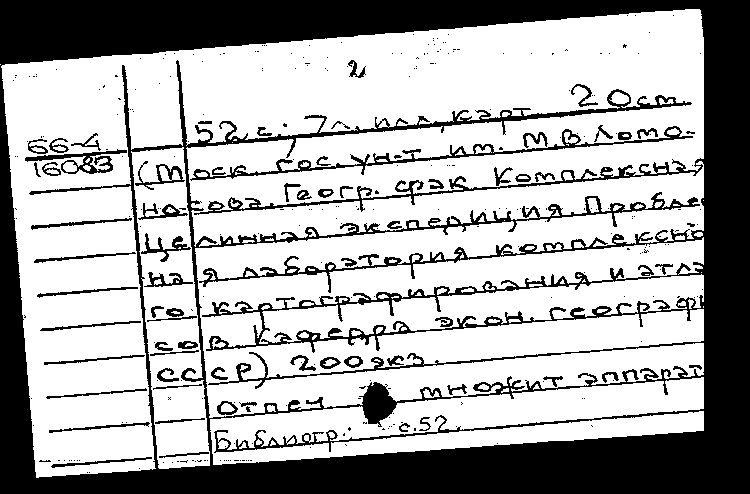 2
52 с.; 7 л. илл., карт. 20 см.
66-4
16083
(Моск. гос. ун-т им. М.В. Ломо-
носова. Геогр. фак. Комплексная
целинная экспедиция. Проблем
ная лаборатория комплексно
го картографирования и атла
сов. Кафедра экон. географи
СССР). 200 экз.
Отпеч множит аппарат
Библиогр.: с.52.